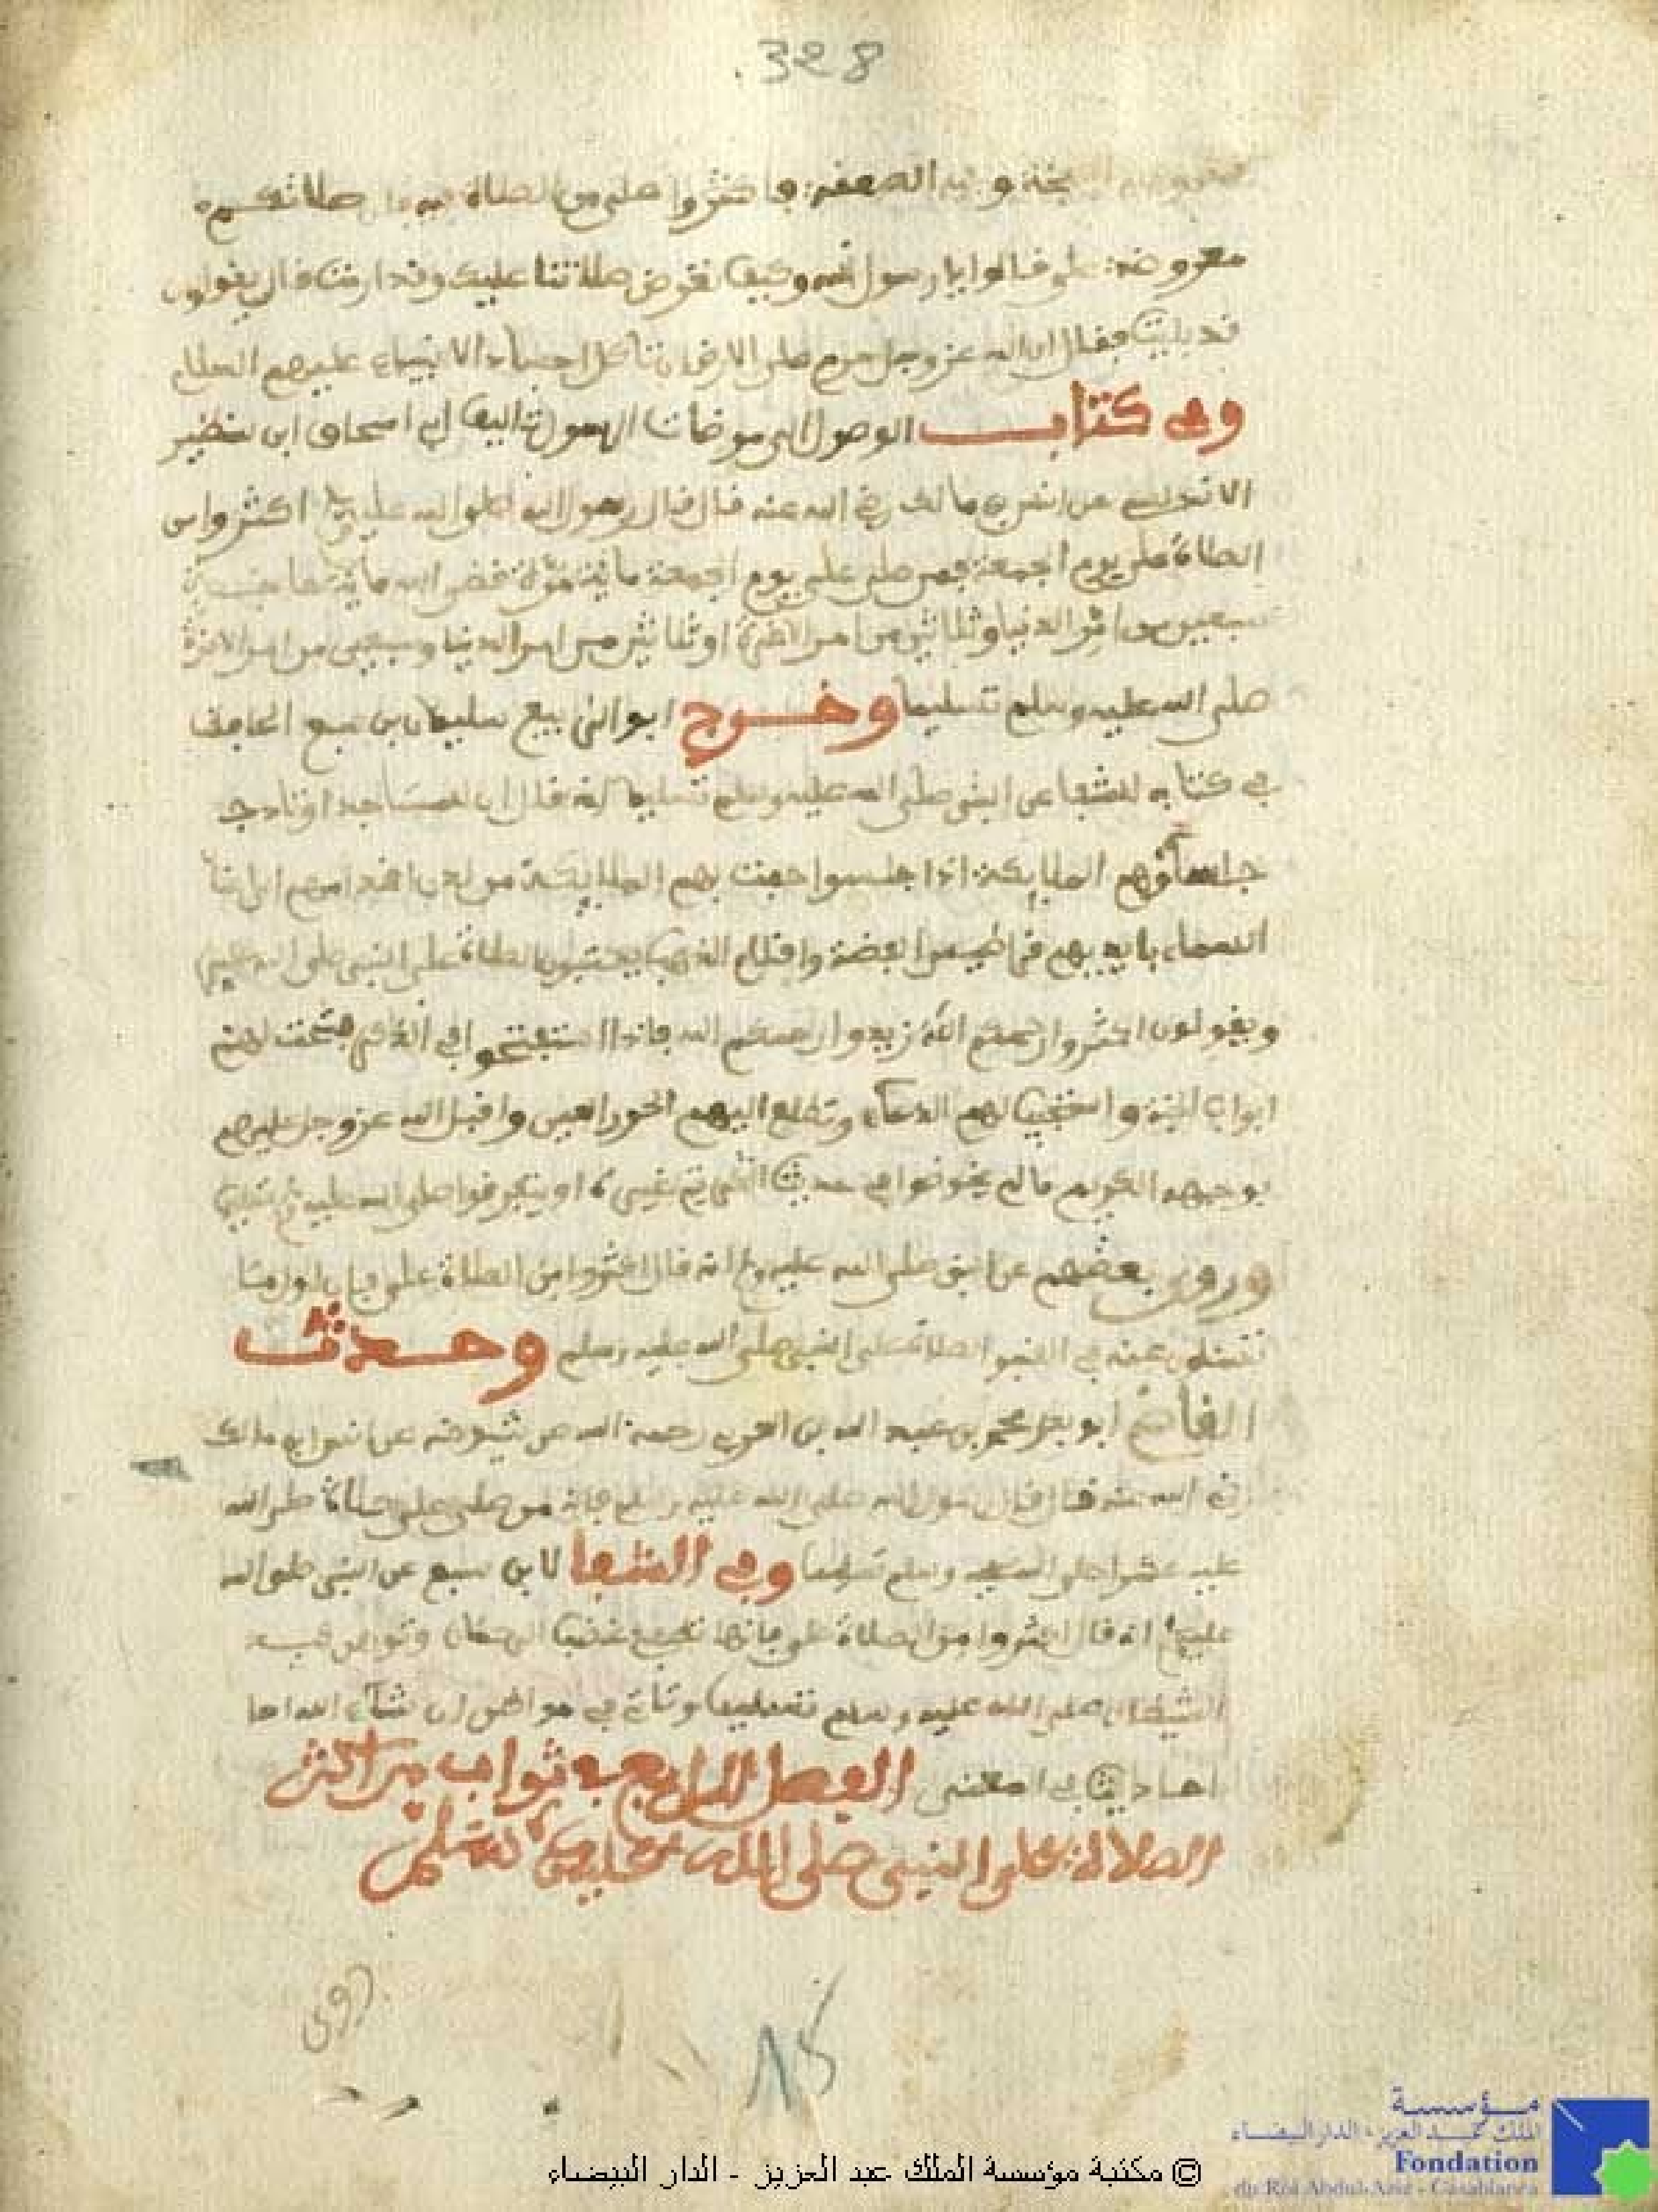 328
النفخة وفيه الصعقة فاكثروا علي من الصلاة فيه فان صلاتكم
معروضة علي قالوا يا رسول الله وكيف تعرض صلاتنا عليك وقد ارمت قال يقولون
قد بليت فقال ان الله عز وجل حرم على الارض ان تاكل اجساد الانبياء عليهم السلام
وفي كتاب الوصول الى مرضات الرسول تاليف ابي اسحاق ابن
الاندلسي عن انس بن مالك رضي الله عنه قال قال رسول الله صلى الله عليه وسلم اكثروا من
الصلاة علي يوم الجمعة فمن صلى علي يوم الجمعة مائة مرة قضى الله مائة حاجة
سبعين من امر الدنيا وثلاثين من امر الاخرة او ثلاثين من امر الدنيا وسبعين من امر الاخرة
صلى الله عليه وسلم تسليما وخرج ابو الربيع سليمان بن سبع
في كتابه الشفا عن النبي صلى الله عليه وسلم تسليما انه قال ان للمساجد اوتادا
جلساؤهم الملايكة اذا جلسوا حفت بهم الملايكة من لدن اقدامهم الى عنان
السماء بايديهم قراطيس الفضة واقلام الذهب يكتبون الصلاة على النبي صلى الله عليه وسلم
ويقولون اكثروا رحمكم الله زيدوا رحمكم الله فاذا استفتحوا في الذكر فتحت لهم
ابواب الجنة واستجيب لهم الدعاء وتطلع اليهم الحور العين واقبل الله عز وجل عليهم
بوجهه الكريم ما لم يخوضوا في حديث غيره او يتفرقوا صلى الله عليه وسلم تسليما
وروى بعضهم عن النبي صلى الله عليه وسلم انه قال اكثروا من الصلاة علي فان اول ما
تسئلون عنه في القبر الصلاة على النبي صلى الله عليه وسلم وحدث
القاضي ابو بكر محمد بن عبد الله بن العربي رحمه الله عن شيوخه عن انس ابن مالك
رضي الله عنه قال قال رسول الله صلى الله عليه وسلم فانه من صلى علي صلاة صلى الله
عليه عشرا صلى الله عليه وسلم تسليما وفي الشفا لابن سبع عن النبي صلى الله
عليه وسلم انه قال اكثروا من الصلاة علي فانها تطفئ غضب
الشيطان صلى الله عليه وسلم تسليما وتاتي في مواطن ان شاء الله
احاديث في المعنى الفصل الرابع في ثواب من اكثر
الصلاة على النبي صلى الله عليه وسلم
روى
15
© مكتبة مؤسسة الملك عبد العزيز - الدار البيضاء
مؤسسة
الملك عبد العزيز - الدار البيضاء
Fondation
du Roi Abdul-Aziz - Casablanca